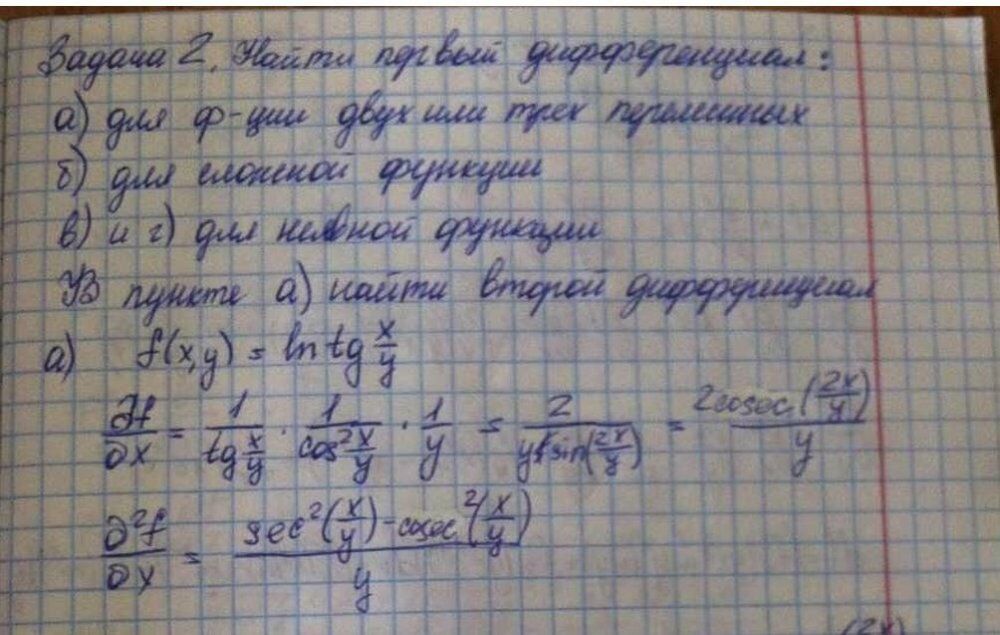 Задача 2. Найти первый дифференциал:
а) для ф-ции двух или трех переменных
б) для сложной функции
в) и г) для неявной функции
В пункте а) найти второй дифференциал
а) f(x,y) = ln tg x/y
∂f/∂x = 1/(tg x/y) · 1/(cos² x/y) · 1/y = 2/(y sin(2x/y)) = 2cosec(2x/y)/y
∂²f/∂x = (sec²(x/y) - cosec²(x/y))/y
(2x)